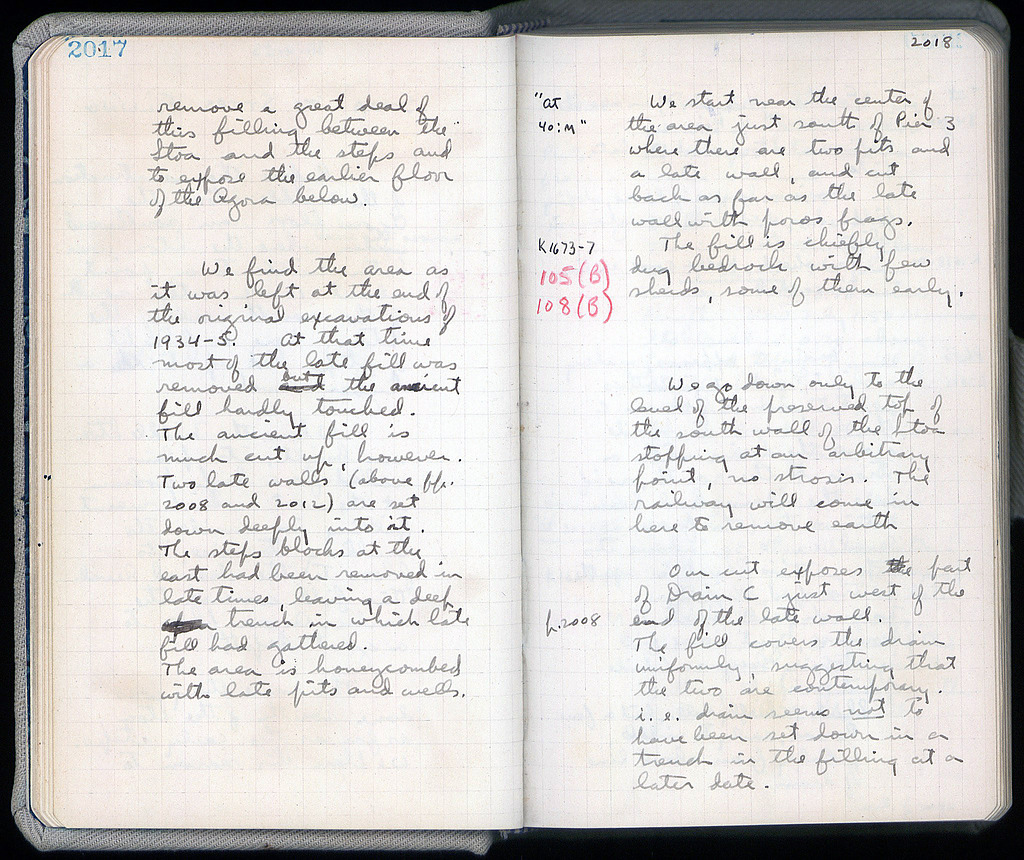 2017
remove a great deal of
this filling between the
Stoa and the steps and
to expose the earlier floor
of the Agora below.
We find the area as
it was left at the end of
the original excavations of
1934-5. At that time
most of the late fill was
removed but the ancient
fill hardly touched.
The ancient fill is
much cut up, however.
Two late walls (above pp.
2008 and 2012) are set
down deeply into it.
The steps blocks at the
east had been removed in
late times, leaving a deep
trench in which late
fill had gathered.
The area is honeycombed
with late pits and wells.
2018
"at
40:M"
We start near the center of
the area just south of Pier 3
where there are two pits and
a late wall, and cut
back as far as the late
wall with poros frags.
K1673-7
105(B)
108(B)
The fill is chiefly
dug bedrock with few
sherds, some of them early.
We go down only to the
level of the preserved top of
the south wall of the Stoa
stopping at an arbitrary
point, no strosis. The
railway will come in
here to remove earth
Our cut exposes the part
of Drain C just west of the
p.2008
end of the late wall.
The fill covers the drain
uniformly, suggesting that
the two are contemporary.
i.e. drain seems not to
have been set down in a
trench in the filling at a
later date.